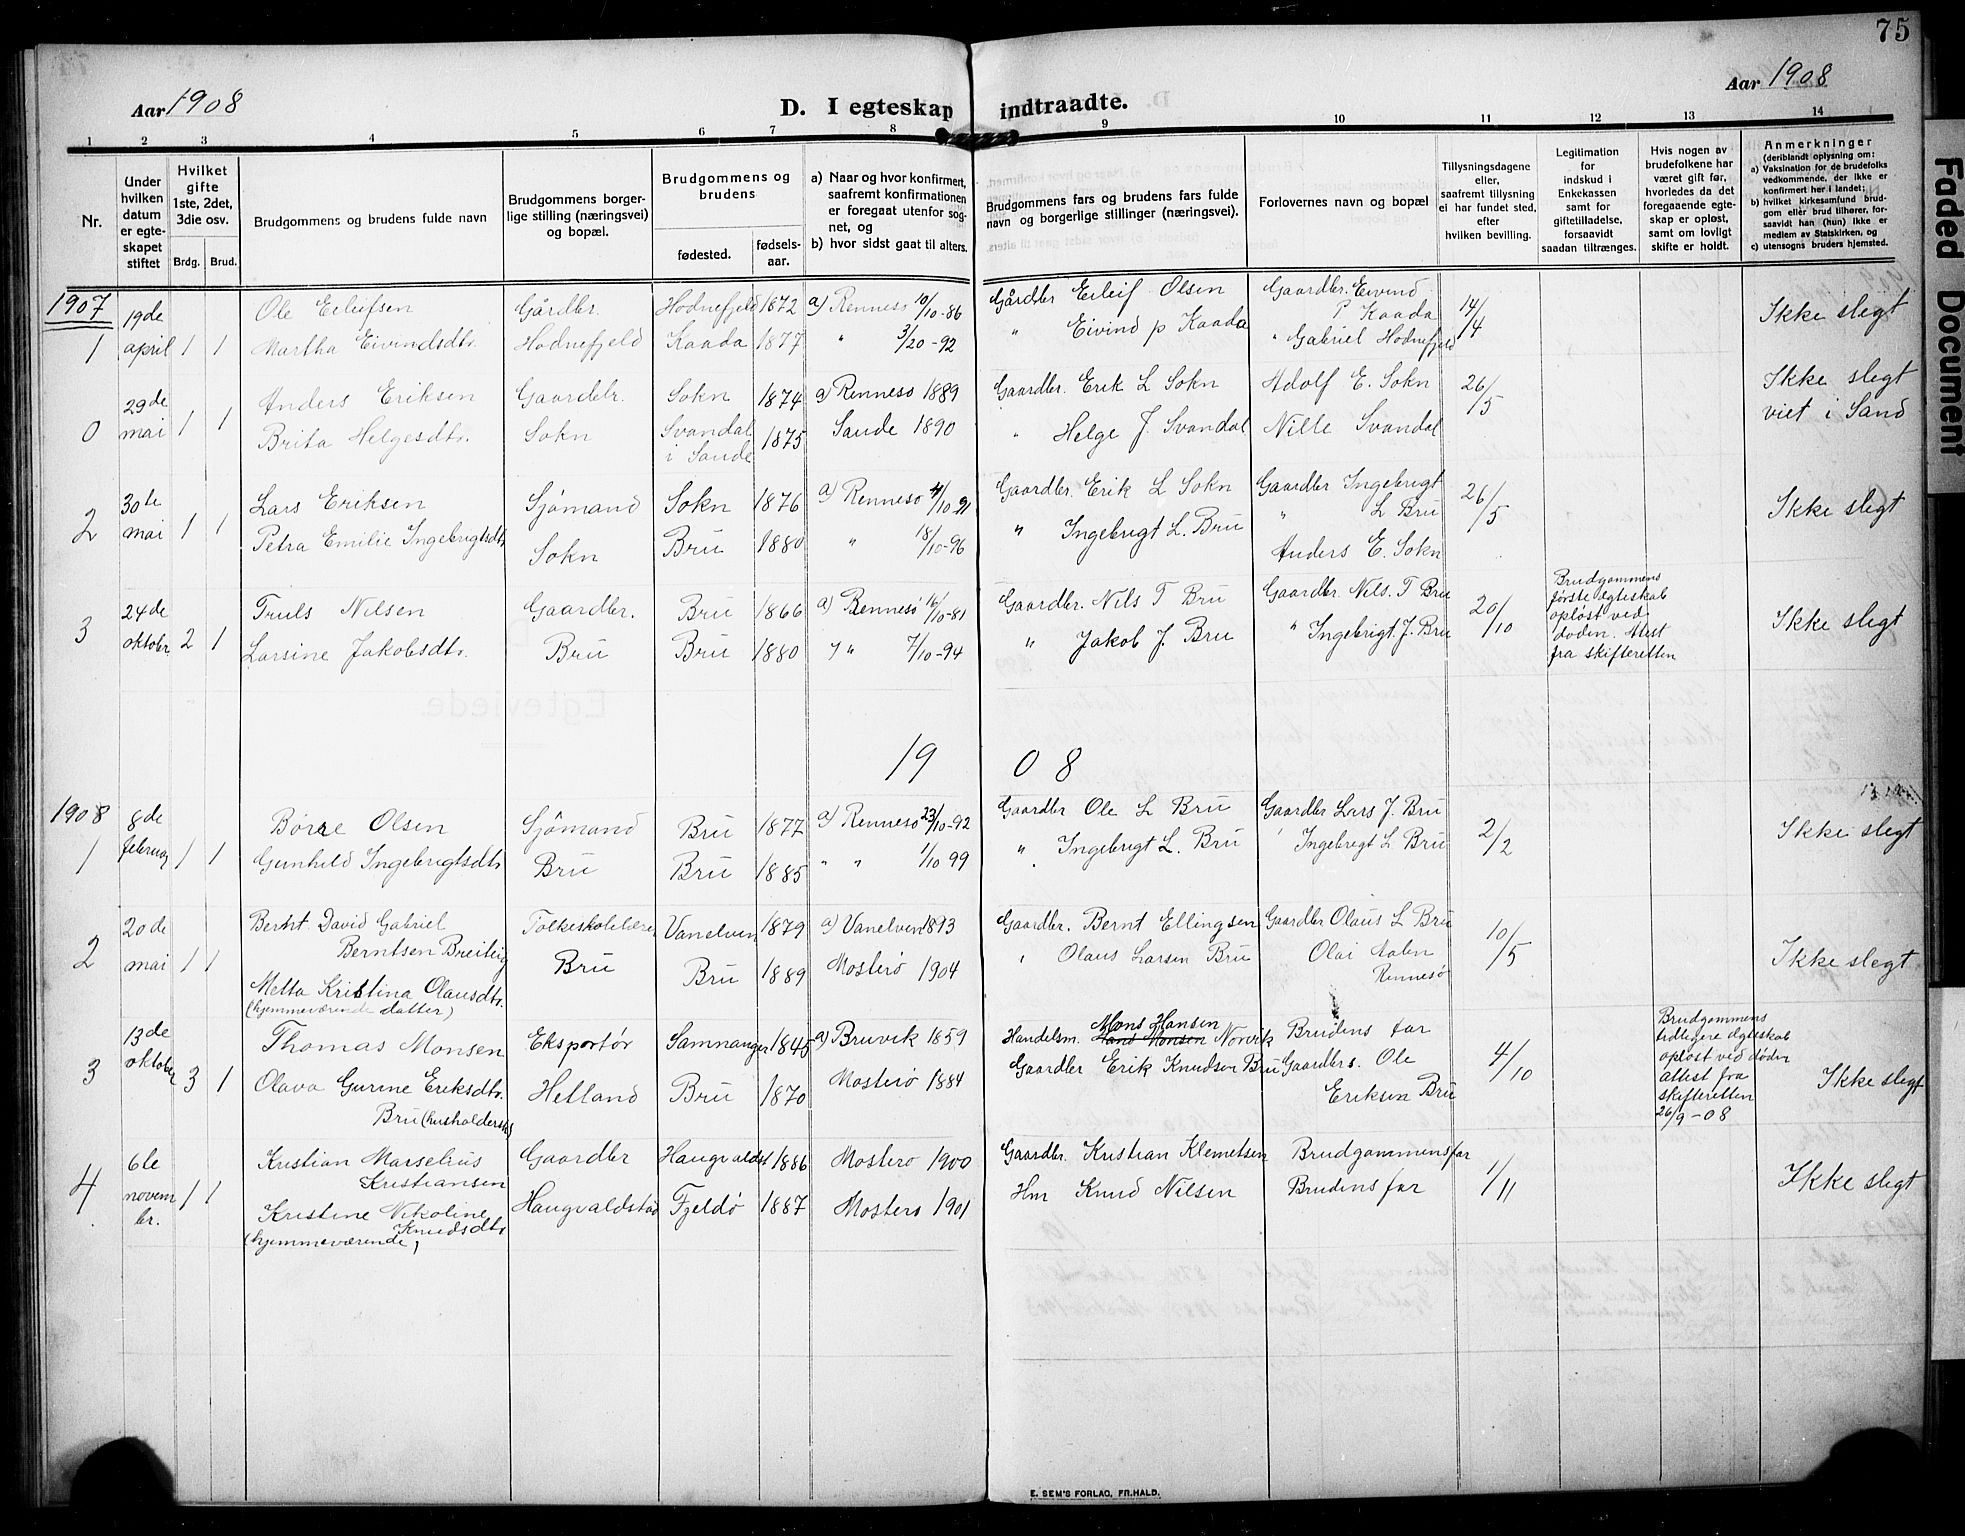 75
Aar 1908
D. I egteskap indtraadte.
Aar 1908
1 2 3 4 5 6 7 8 9 10 11 12 13 14
Nr.
Under hvilken datum er egteskapet stiftet
Hvilket gifte 1ste, 2det, 3die osv.
Brdg. Brud.
Brudgommens og brudens fulde navn
Brudgommens borgerlige stilling (næringsvei) og bopæl.
Brudgommens og brudens
fødested.
fødselsaar.
a) Naar og hvor konfirmert, saafremt konfirmationen er foregaat utenfor sognet, og
b) hvor sidst gaat til alters.
Brudgommens fars og brudens fars fulde navn og borgerlige stillinger (næringsvei).
Forlovernes navn og bopæl
Tillysningsdagene eller, saafremt tillysning ei har fundet sted, efter hvilken bevilling.
Legitimation for indskud i Enkekassen samt for giftetilladelse, forsaavidt saadan tiltrænges.
Hvis nogen av brudefolkene har været gift før, hvorledes da det foregaaende egteskap er opløst, samt om lovligt skifte er holdt.
Anmerkninger
(deriblandt oplysning om:
a) Vaksination for de brudefolks vedkommende, der ikke er konfirmert her i landet;
b) hvilket kirkesamfund brudgom eller brud tilhører, forsaavidt han (hun) ikke er medlem av Statskirken, og
c) utensogns bruders hjemsted.
1907
1 19de april 1 1 Ole Eileifsen Gårdbr. Hodnefjeld 1872 a) Rennesø 10/10-86 Gårdbr Eileif Olsen Gaardbr. Eivind P Kaada 14/14 Ikke slegt
Martha Eivindsdtr. Hodnefjeld Kaada 1877 " 3/20-92 " Eivind p Kaada " Gabriel Hodnefjeld
0 29de mai 1 1 Anders Eriksen Gaardbr. Sokn 1874 a) Rennesø 1889 Gaardbr. Erik L Sokn Adolf E. Sokn 26/5 Ikke slegt
Brita Helgesdtr. Sokn Svandal i Sande 1875 Sande 1890 " Helge J. Svandal Nille Svandal viet i Sand
2 30te mai 1 1 Lars Eriksen Sjømand Sokn 1876 a) Rennesø 4/10-91 Gaardbr. Erik L Sokn Gaardbr Ingebrigt L Bru 26/5 Ikke slegt
Petra Emilie Ingebrigtsdtr. Sokn Bru 1880 " 18/10-96 " Ingebrigt L. Bru " Anders E. Sokn
3 24de oktober 2 1 Truls Nilsen Gaardbr. Bru 1866 a) Rennesø 16/10-81 Gaardbr. Nils T Bru Gaardbr. Nils. T Bru 20/10 Brudgommens første ægteskab opløst ved døden. Attest fra skifteretten Ikke slegt
Larsine Jakobsdtr. Bru Bru 1880 " " 7/10-94 " Jakob J. Bru " Ingebrigt. J. Bru
1908
1908
1 8de februar 1 1 Børre Olsen Sjömand Bru 1877 a) Rennesø 23/10-92 Gaardbr Ole L Bru Gaardbr Lars J. Bru 2/2 Ikke slegt
Gunhild Ingebrigtsdtr. Bru Bru 1885 " " 1/10 99 " Ingebrigt L. Bru " Ingebrigt L Bru
2 20de mai 1 1 Bernt David Gabriel Berntsen Breiteig Folkeskolelærer Vanelven 1879 a) Vanelven 1893 Gaardbr. Bernt Ellingsen Gaardbr Olaus L Bru 10/5 Ikke slegt
Metta Kristina Olausdtr. (hjemmeværende datter) Bru Bru 1889 Mosterø 1904 " Olaus Larsen Bru Olai Aalen Rennesø
3 13de oktober 3 1 Thomas Monsen Eksportør Samnanger 1845 a) Bruvik 1859 Handelsm. Mons Hansen Hans Monsen Norvik Brudens far 4/10 Brudgommens tidligere ægteskab opløst ved døden attest fra skifteretten 26/9-08 Ikke slegt
Olava Gurine Eriksdtr. Bru (husholderske) Hetland Bru 1870 Mosterø 1884 Gaardbr Erik Knudsen Bru Gaardbrs. Ole Eriksen Bru
4 6te novembr. 1 1 Kristian Marselius Kristiansen Gaardbr Haugvaldst 1886 Mosterø 1900 Gaardbr. Kristian Klemetsen Brudgommens far 1/11 Ikke slegt
Kristine Nikoline Knudsdtr (hjemmeværende) Haugvaldstad Fjeldø 1887 Mosterø 1901 Hm Knud Nilsen Brudens far
E. SEM'S FORLAG, FR.HALD.
Faded Document